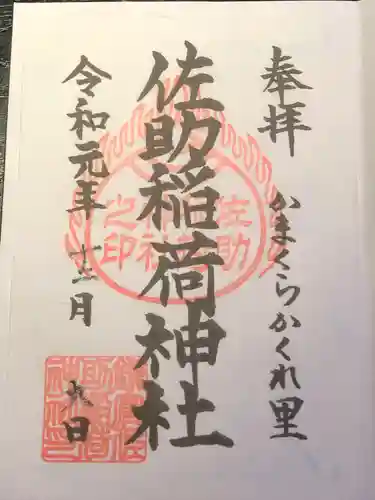 奉拝
かまくらかくれ里
佐助稲荷神社
令和元年
十二月
九日
佐助
稲荷
神社
之印